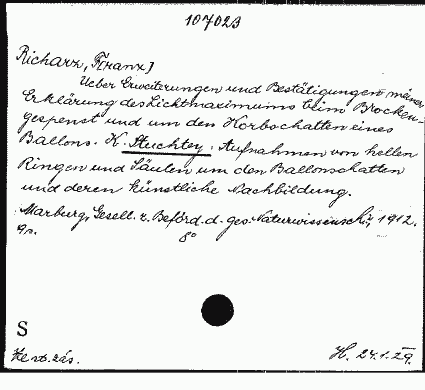 107023
Richarz, F[ranz]
Ueber Erweiterungen und Bestätigungen meiner
Erklärung des Lichtmaximums beim Brocken-
gespenst und um den Korbschatten eines
Ballons. K. Stuchtey: Aufnahmen von hellen
Ringen und Säulen um den Ballonschatten
und deren künstliche Nachbildung.
Marburg, Gesell. z. Beförd. d. ges. Naturwissensch., 1912.
8°
S
H. 24.1.29.